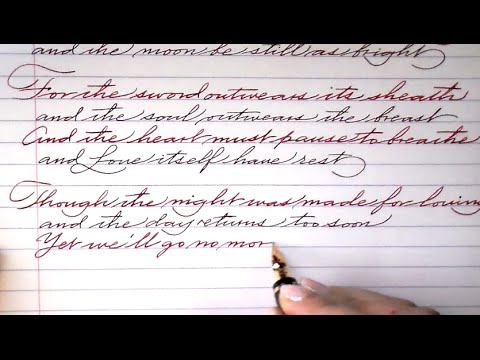 and the moon be still as bright
For the sword outwears its sheath
and the soul outwears the breast
And the heart must pause to breathe
and Love itself have rest
Though the night was made for loving
and the day returns too soon
Yet we'll go no mor